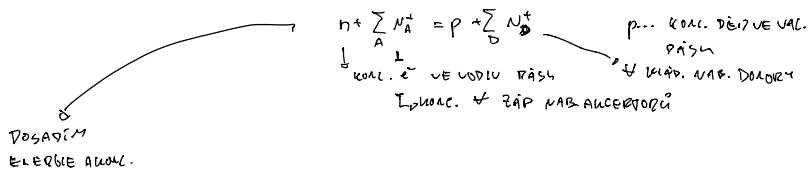 n + ∑_A N_A^+ = p + ∑_D N_D^+
p... KONC. DĚR VE VAL. PÁSU
↓ KONC. e⁻ VE VODIV PÁSU
∀ KLAD. NAB. DONORY
↳ KONC. ∀ ZÁP NAB. AKCEPTORŮ
DOSADÍM
ENERGIE A KONC.